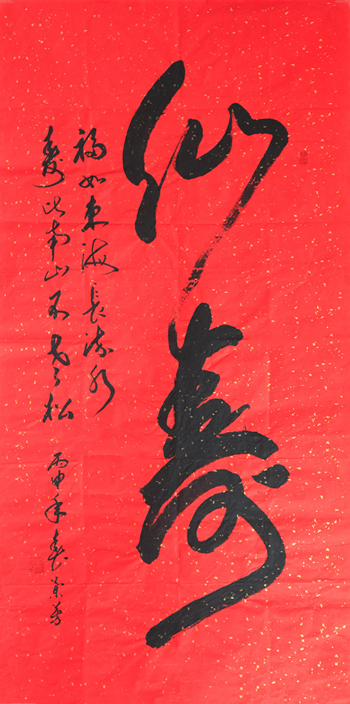 仙寿
福如東海長流水
寿比南山不老松
丙申年春